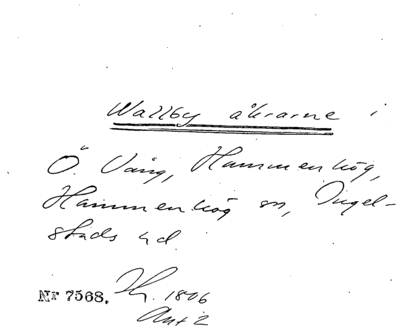 Wallby åkrarne i
Ö. Vång, Hammenhög,
Hammenhög sn, Ingel-
stads hd.
Nr 7568. Th. 1806
Akt 2